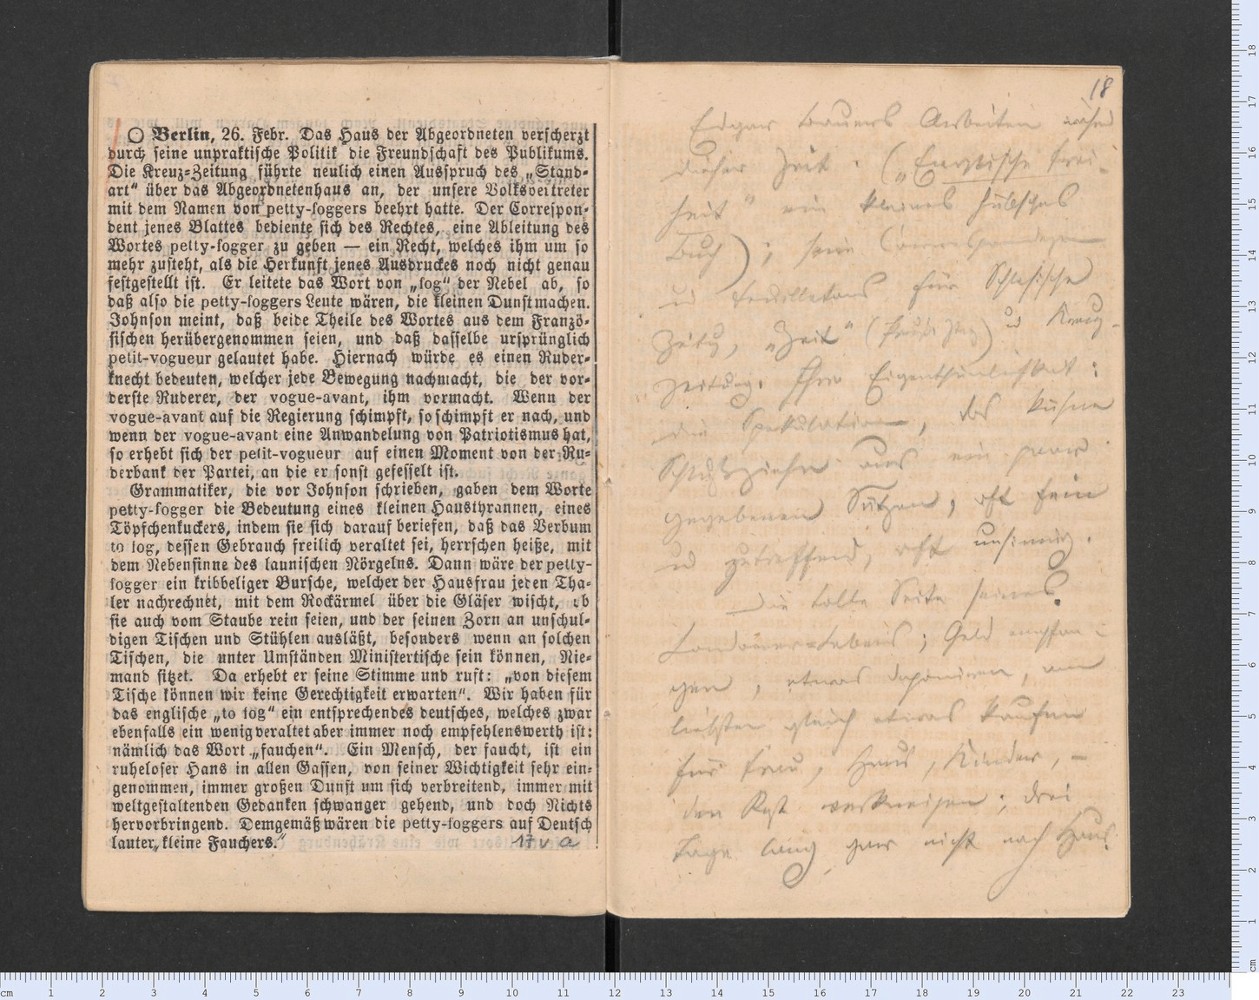 ○ Berlin, 26. Febr. Das Haus der Abgeordneten verscherzt
durch seine unpraktische Politik die Freundschaft des Publikums.
Die Kreuz-Zeitung führte neulich einen Ausspruch des „Stand-
art“ über das Abgeordnetenhaus an, der unsere Volksvertreter
mit dem Namen von petty-foggers beehrt hatte. Der Correspon-
dent jenes Blattes bediente sich des Rechtes, eine Ableitung des
Wortes petty-fogger zu geben — ein Recht, welches ihm um so
mehr zusteht, als die Herkunft jenes Ausdruckes noch nicht genau
festgestellt ist. Er leitete das Wort von „fog“ der Nebel ab, so
daß also die petty-foggers Leute wären, die kleinen Dunst machen.
Johnson meint, daß beide Theile des Wortes aus dem Franzö-
sischen herübergenommen seien, und daß dasselbe ursprünglich
petit-vogueur gelautet habe. Hiernach würde es einen Ruder-
knecht bedeuten, welcher jede Bewegung nachmacht, die der vor-
derste Ruderer, der vogue-avant, ihm vormacht. Wenn der
vogue-avant auf die Regierung schimpft, so schimpft er nach, und
wenn der vogue-avant eine Anwandelung von Patriotismus hat,
so erhebt sich der petit-vogueur auf einen Moment von der Ru-
derbank der Partei, an die er sonst gefesselt ist.
Grammatiker, die vor Johnson schrieben, gaben dem Worte
petty-fogger die Bedeutung eines kleinen Haustyrannen, eines
Töpfchenkuckers, indem sie sich darauf beriefen, daß das Verbum
to fog, dessen Gebrauch freilich veraltet sei, herrschen heiße, mit
dem Nebensinne des launischen Nörgelns. Dann wäre der petty-
fogger ein kribbeliger Bursche, welcher der Hausfrau jeden Tha-
ler nachrechnet, mit dem Rockärmel über die Gläser wischt, ob
sie auch vom Staube rein seien, und der seinen Zorn an unschul-
digen Tischen und Stühlen ausläßt, besonders wenn an solchen
Tischen, die unter Umständen Ministertische sein können, Nie-
mand sitzet. Da erhebt er seine Stimme und ruft: „von diesem
Tische können wir keine Gerechtigkeit erwarten“. Wir haben für
das englische „to fog“ ein entsprechendes deutsches, welches zwar
ebenfalls ein wenig veraltet aber immer noch empfehlenswerth ist:
nämlich das Wort „fauchen“. Ein Mensch, der faucht, ist ein
ruheloser Hans in allen Gassen, von seiner Wichtigkeit sehr ein-
genommen, immer großen Dunst um sich verbreitend, immer mit
weltgestaltenden Gedanken schwanger gehend, und doch Nichts
hervorbringend. Demgemäß wären die petty-foggers auf Deutsch
lauter „kleine Fauchers.“
17 v a
18
Edgar Bauers Arbeiten
dieser Zeit. („Englische Frei-
heit“ ein kleines hübsches
Buch); seine Correspondenzen
und Feuilletons für Schlesische
Zeitung, „Zeit“ und Kreuz-
zeitung. Ihre Eigenthümlichkeit:
die Spekulation, das kühne
Schlußziehn aus ein paar
gegebenen Sätzen, oft fein
und zutreffend, oft unsinnig.
Die tolle Seite seines
Londoner-Lebens; Geld empfan-
gen, etwas deponiren, am
liebsten gleich etwas kaufen
für Frau, Haus, Kinder, –
den Rest verkneipen; drei
Tage lang gar nicht nach Haus.